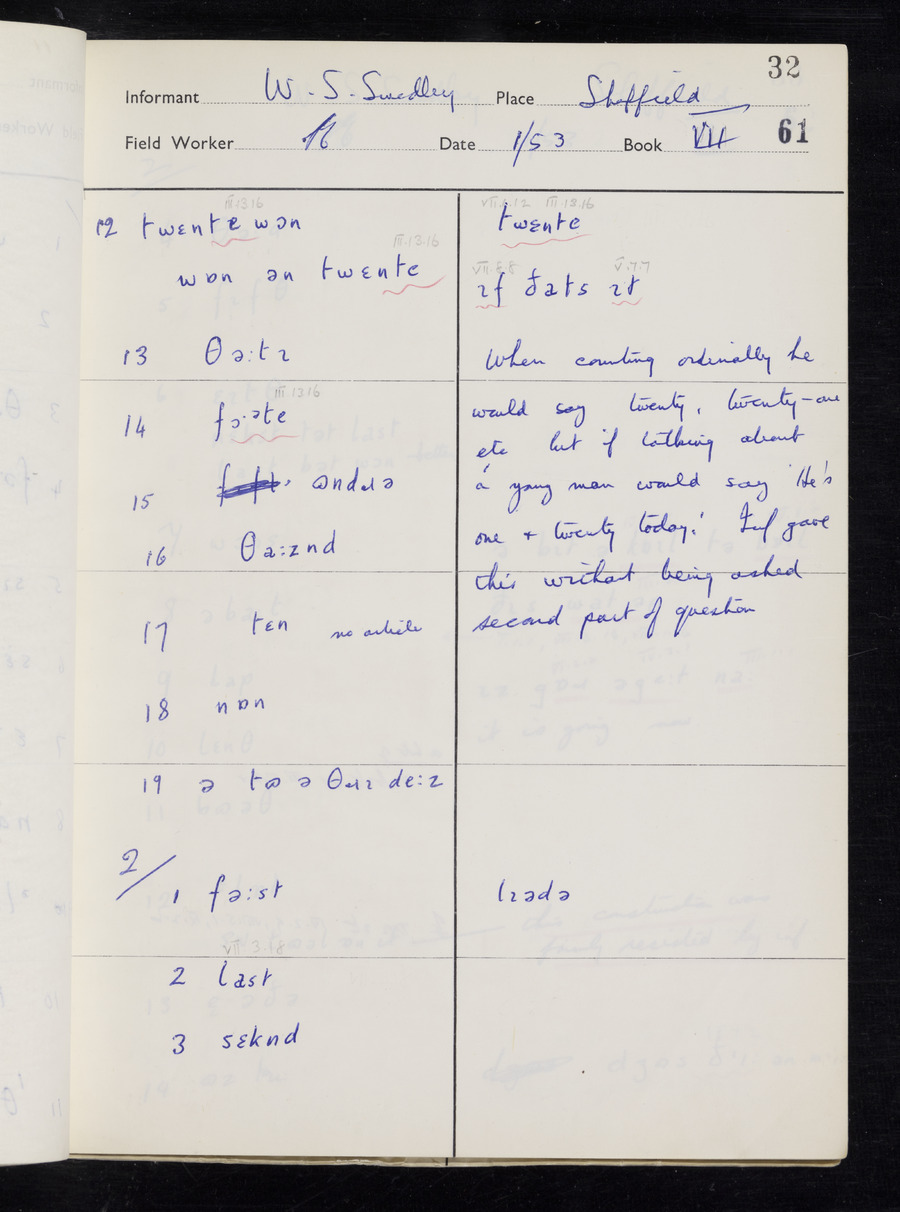 32
Informant W. S. Swedley Place Sheffield
Field Worker Date 1/53 Book VII 61
III.13.16
12 twɛnte wɒn
III.13.16
wɒn ən twɛnte
13 θəːtɪ
III.13.16
14 fɔːᵊte
15 ʊndɹə
16 θaːznd
17 tɛn no article
18 nɒn
19 ə tʊ ə θɹɪ deːz
2/
1 fəːst
VII 3.18
2 last
3 sɛknd
VII.6.12 III.13.16
twɛnte
VII.3.8 V.7.7
ɪf ðats ɪt
When counting ordinally he
would say twenty, twenty-one
etc but if talking about
a young man would say 'He's
one + twenty today.' Inf gave
this without being asked
second part of question
lɪədə